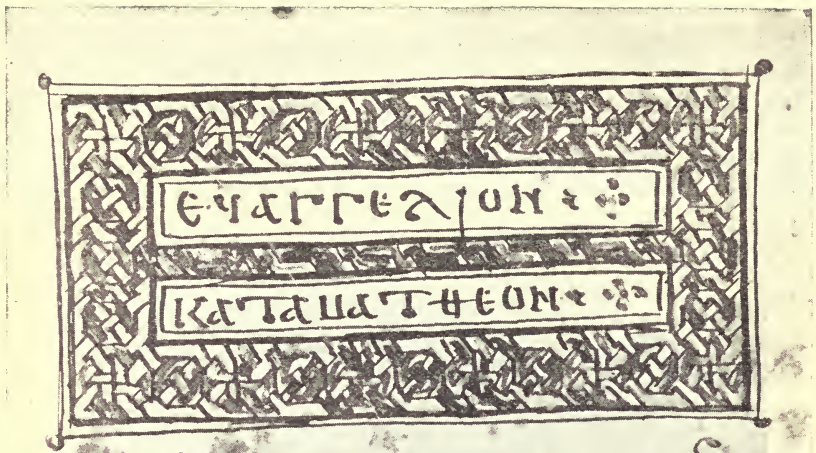 ⲉⲩⲁⲅⲅⲉⲗⲓⲟⲛ
ⲕⲁⲧⲁⲙⲁⲧⲑⲉⲟⲛ